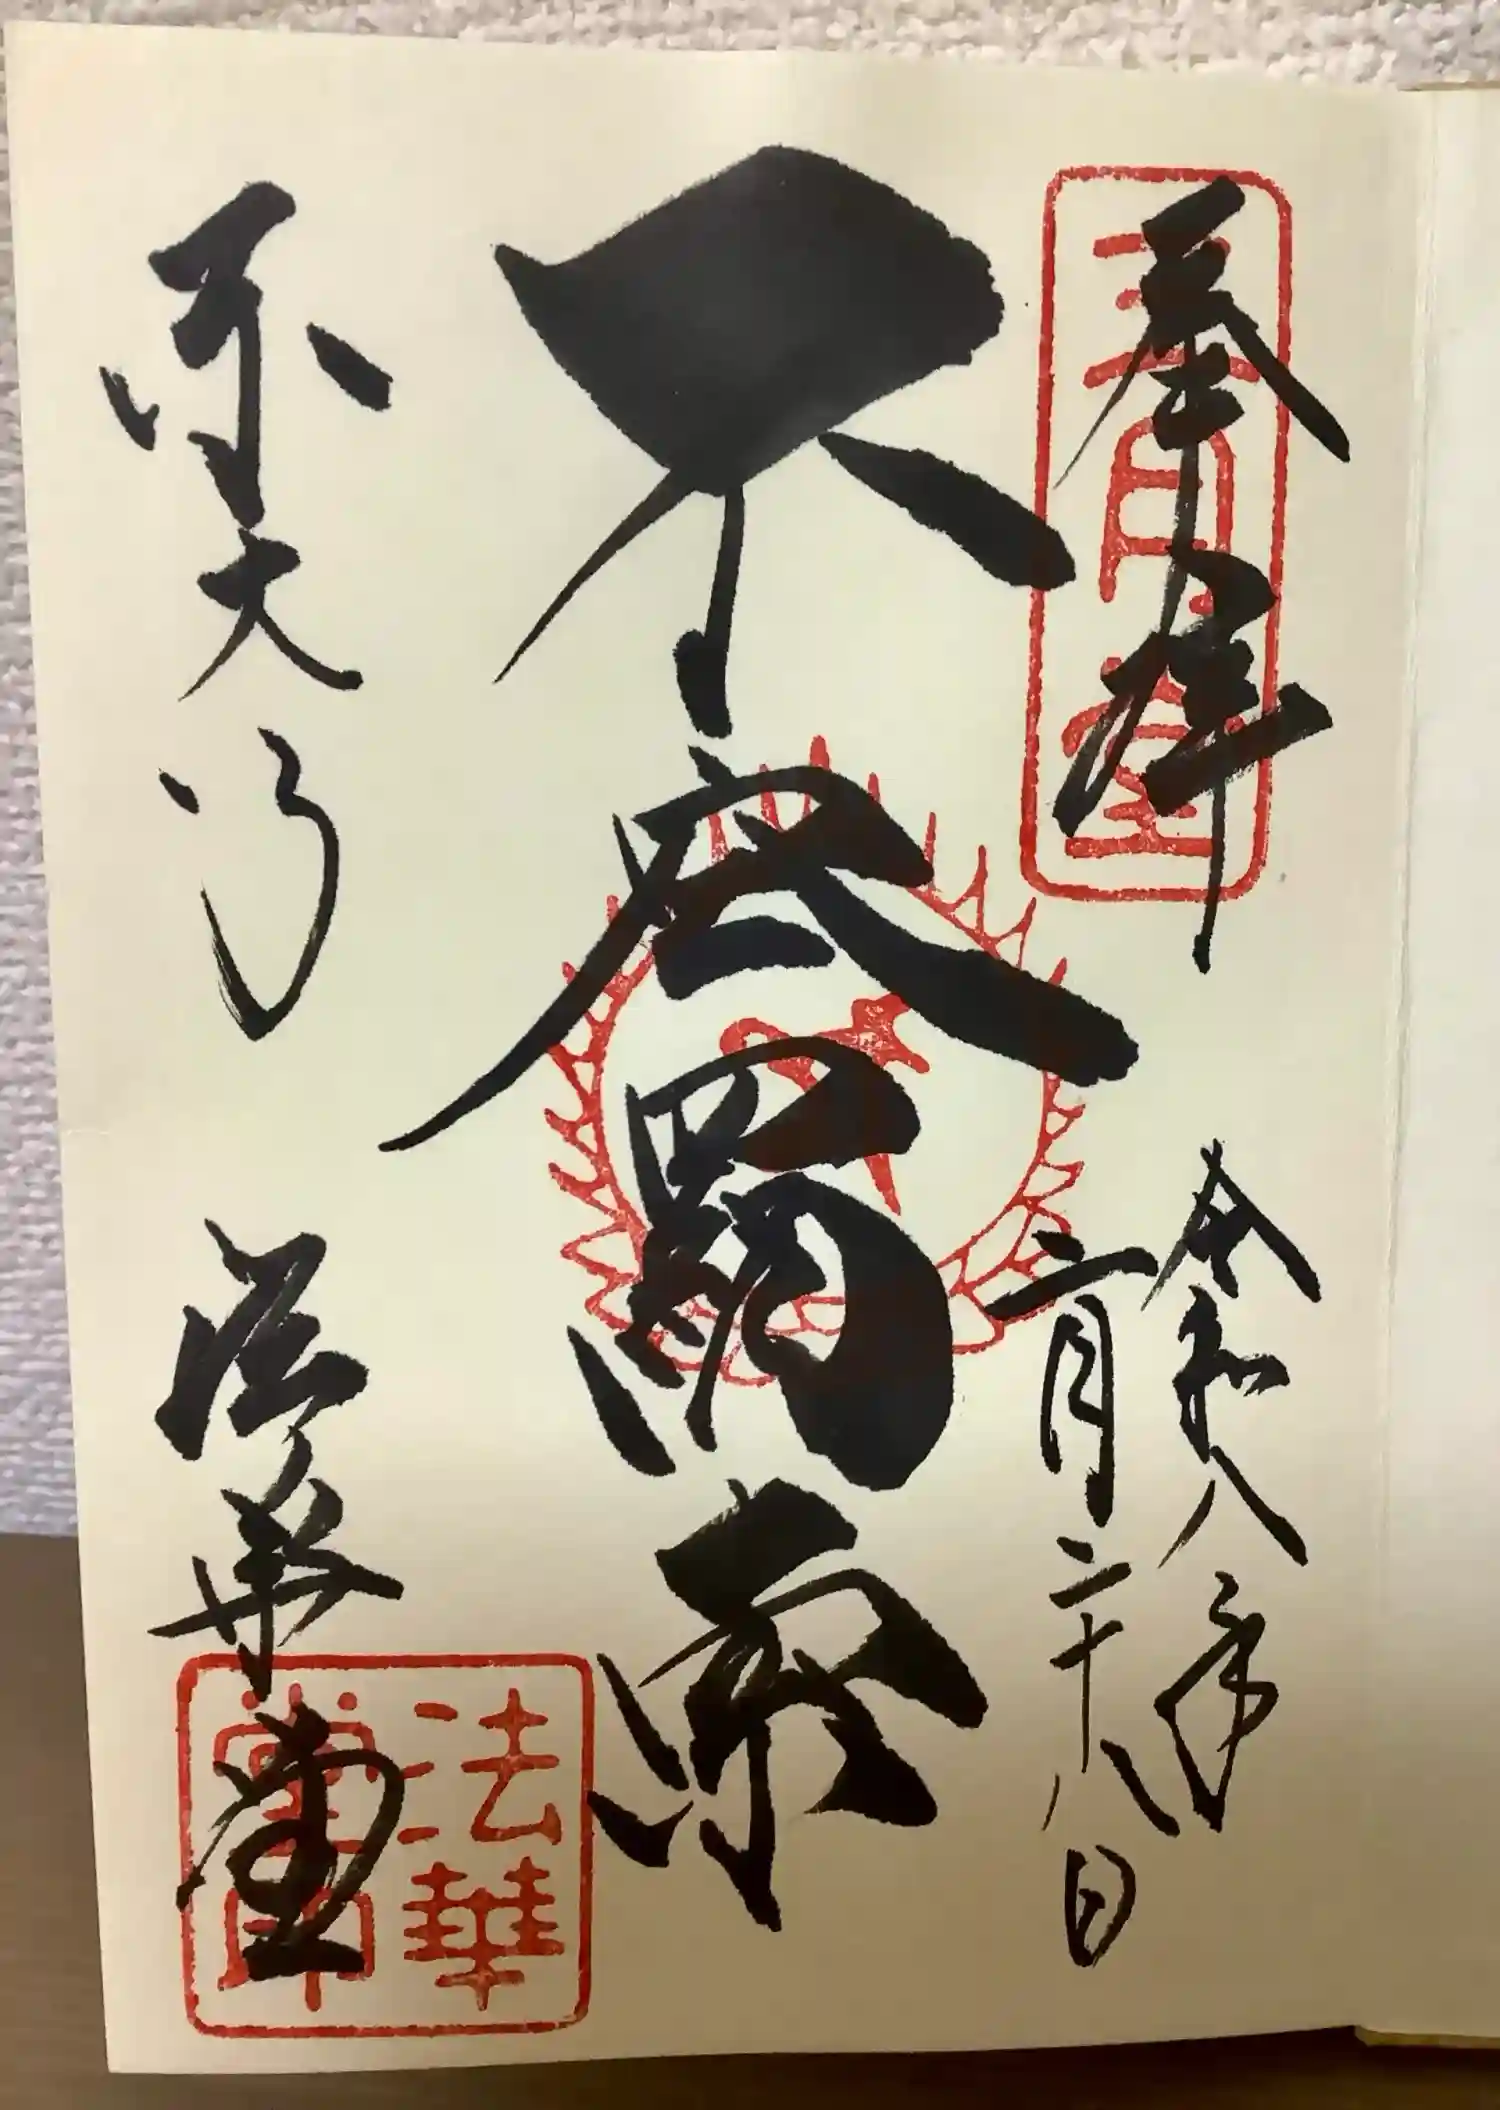 奉拝
三月堂
令和八年
二月二十八日
不空羂索
東大寺
法華堂
法華堂印